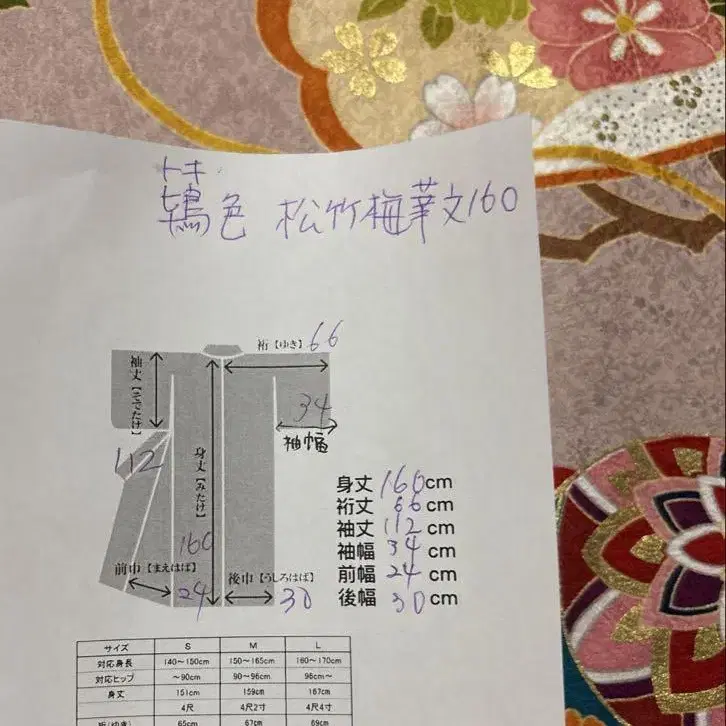 トキ
鴇色 松竹梅華文160
裄【ゆき】66
袖丈【そでたけ】
34
袖幅
112
身丈【みたけ】
160
前巾【まえはば】
24
後巾【うしろはば】
30
身丈 160cm
裄丈 66cm
袖丈 112cm
袖幅 34cm
前幅 24cm
後幅 30cm
サイズ S M L
対応身長 140～150cm 150～165cm 160～170cm
対応ヒップ ～90cm 90～96cm 96cm～
身丈 151cm 159cm 167cm
4尺 4尺2寸 4尺4寸
裄(ゆき) 65cm 67cm 69cm